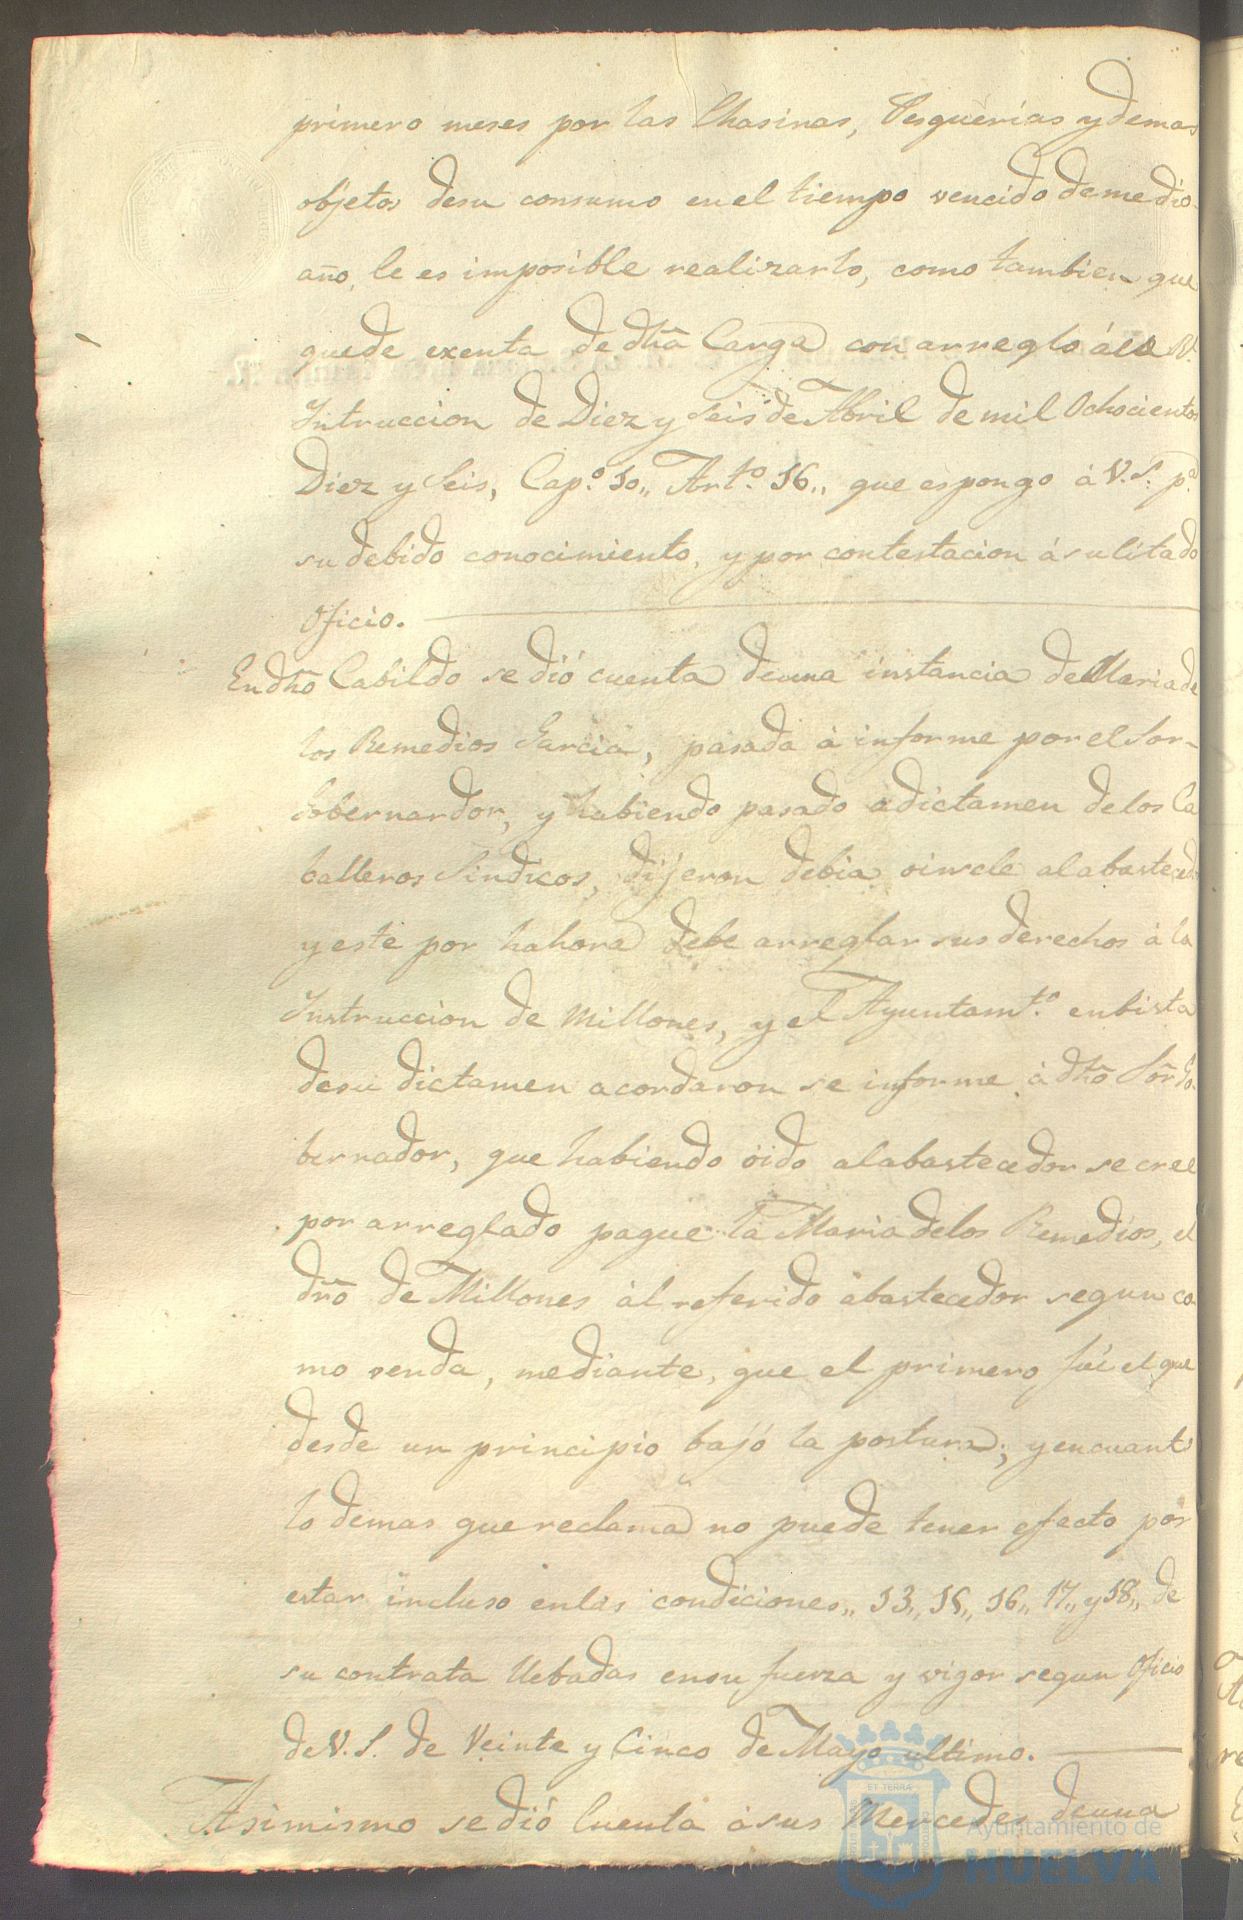 primero meses por las Chasinas, Pesquerias y demas
objetos desu consumo en el tiempo vencido demedio
año, le es imposible realizarlo, como tambien que
quede exenta de dhã Carga con arreglo á la R.
Intruccion de Diez y Seis de Abril de mil Ochocientos
Diez y Seis, Cap.º 10,, Art.º 16,, que espongo á V.S. p.ª
su debido conocimiento, y por contestacion á su litado
Oficio.
En dhõ Cabildo se dió cuenta deuna instancia de Maria de
los Remedios Garcia, pasada á informe por el Sor-
Gobernardor, y habiendo pasado a dictamen de los Ca
balleros Sindicos, dijeron debia oirsele al abasteced.
y este por hahora debe arreglar sus derechos á la
Instruccion de Millones, y el Ayuntam.tº enbista
desu dictamen acordaron se informe á dhõ Sõr Go
bernador, que habiendo óido al abastecedor se cree
por arreglado pague la Maria delos Remedios, el
drõ de Millones ál referido abastecedor segun co
mo venda, mediante, que el primero fué el que
desde un principio bajó la postura; y en cuantº
lo demas que reclama no puede tener efecto por
estar incluso enlas condiciones,, 13,, 15,, 16,, 17,, y 18,, de
su contrata llebadas ensu fuerza y vigor segun Oficio
de V.S. de Veinte y Cinco de Mayo ultimo.
Asimismo se dió Cuenta á sus Mercedes deuna
ET TERRÆ
Ayuntamiento de
HUELVA